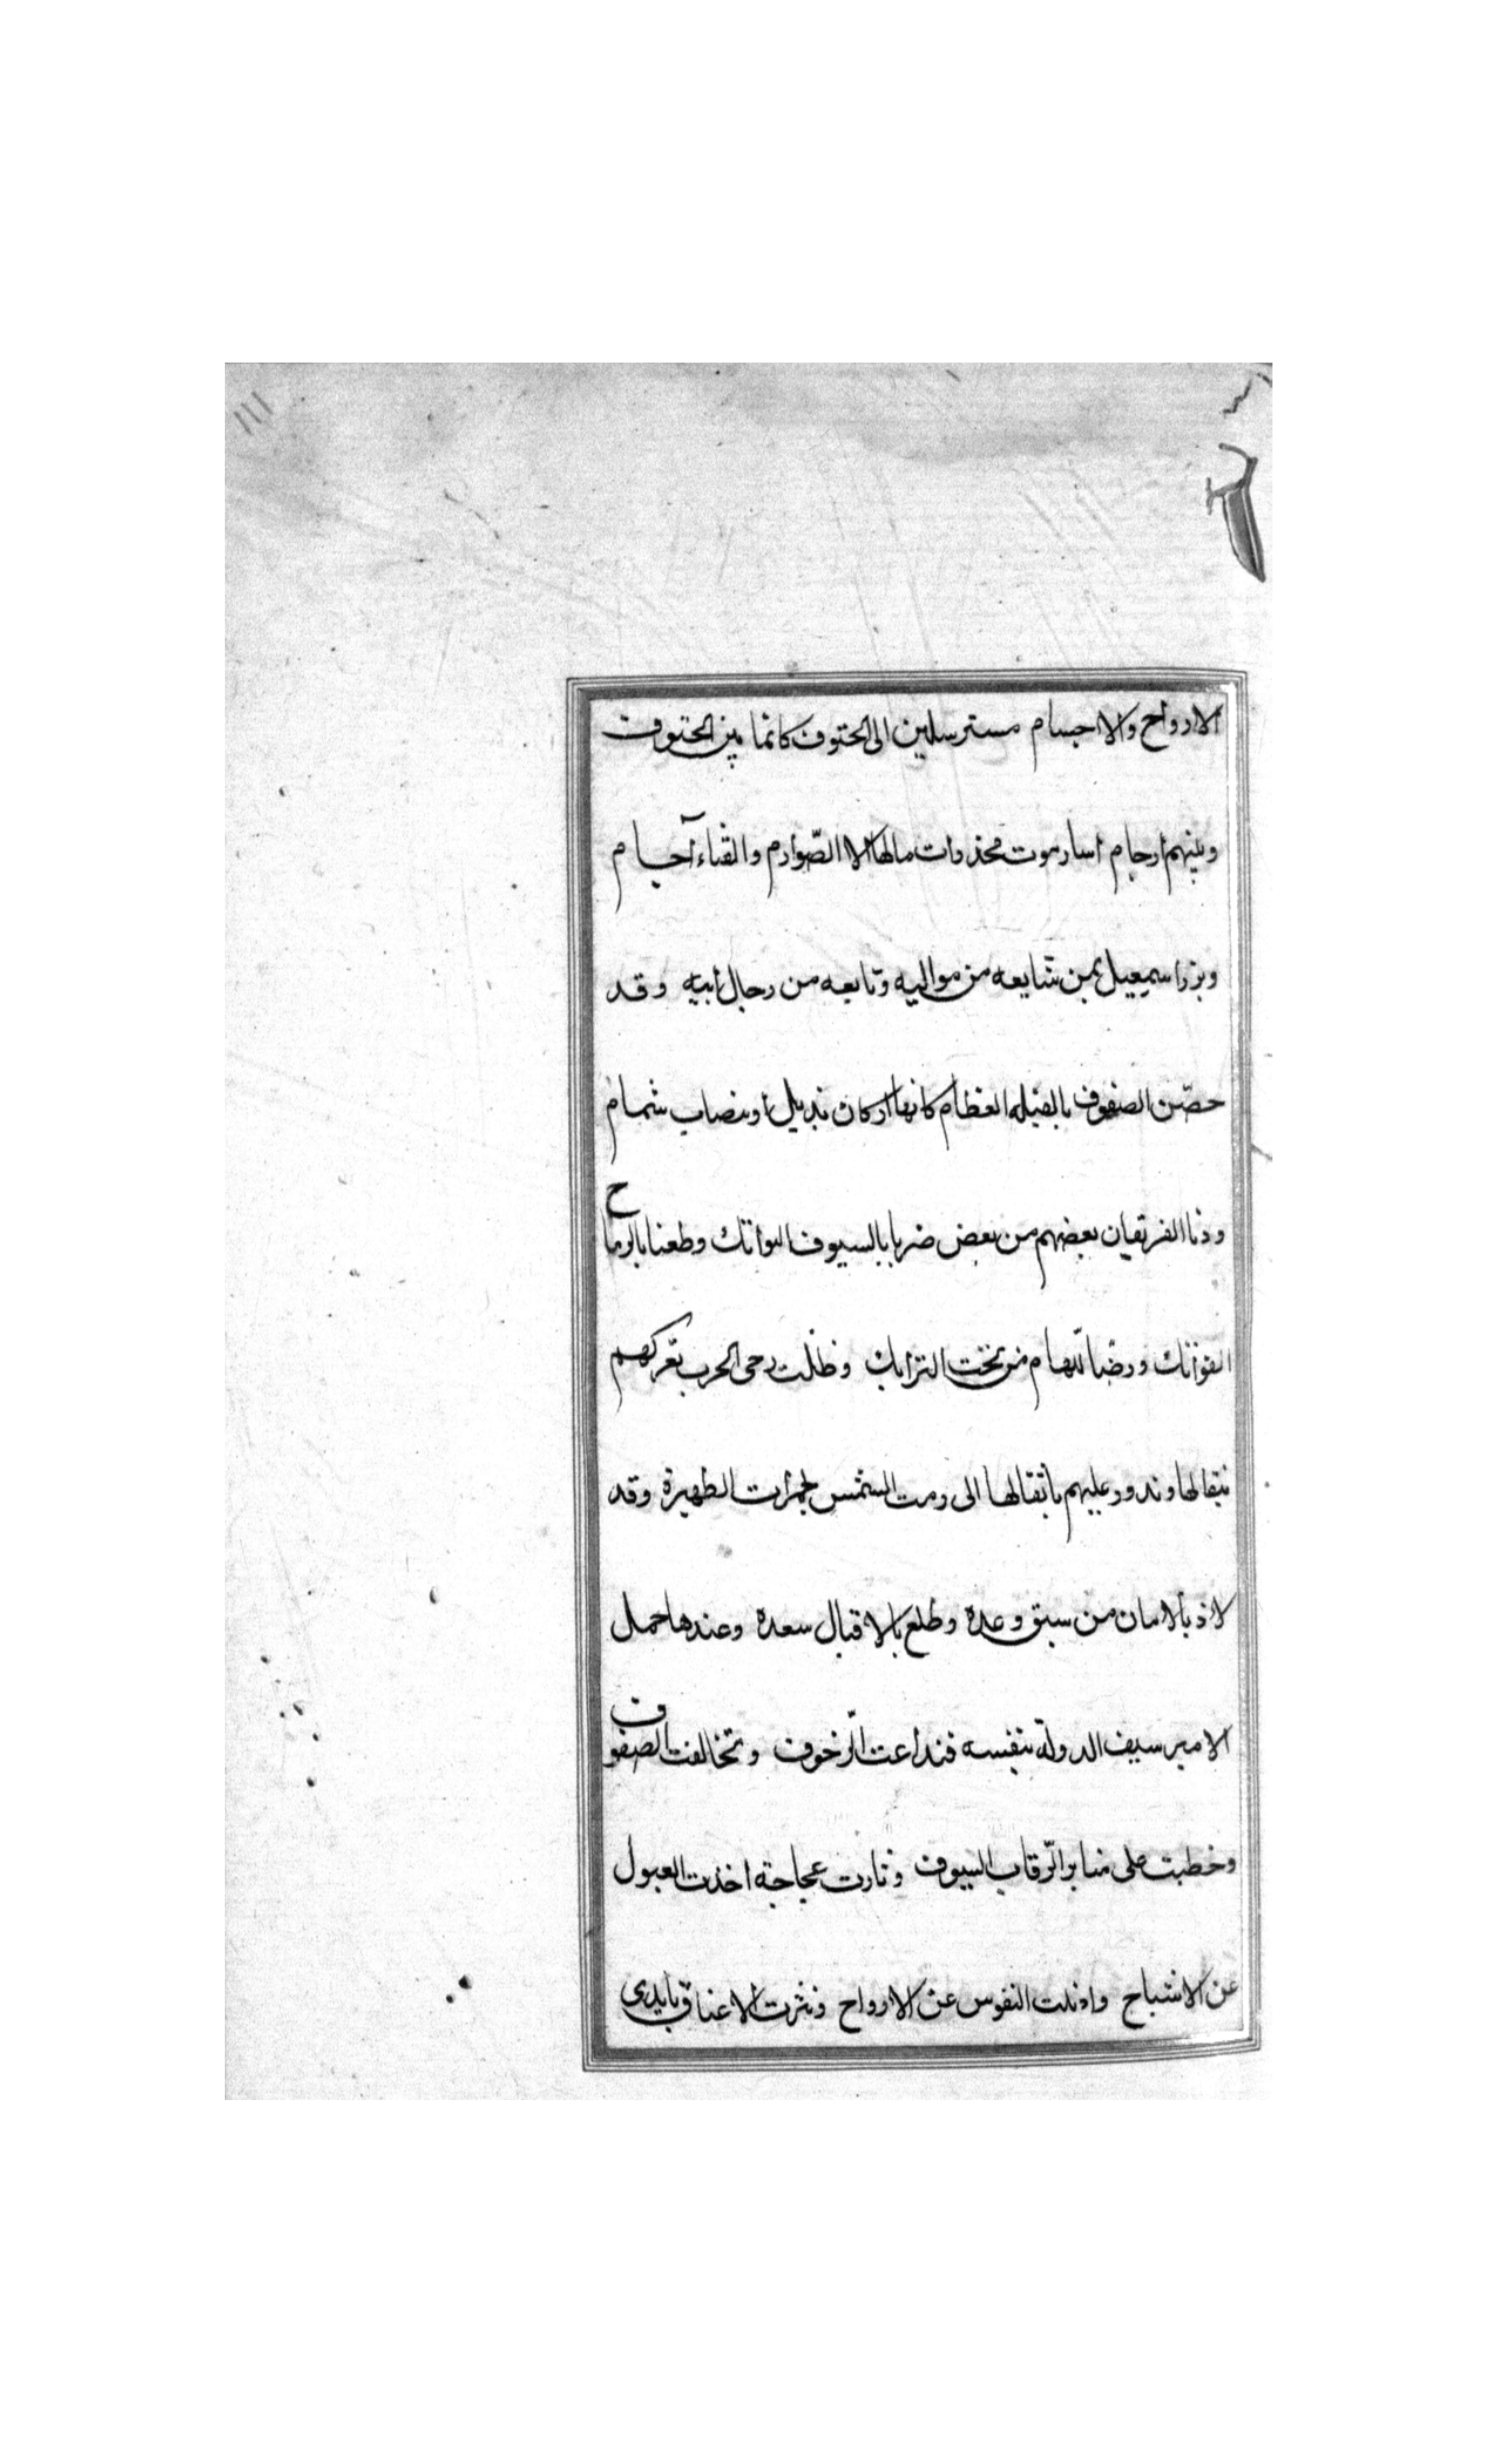 ١١١
الارواح والاجسام مسترسلين الى الحتوف كانما بين الحتوف
وبينهم ارحام اسار موت محذرات مالها الا الصّوارم والقناء آجام
وبرز اسمعيل بمن شايعه من مواليه وتابعه من رجال ابيه وقد
حصّن الصفوف بالفيله العظام كانها اركان يذبل او هضاب شمام
ودنا الفريقان بعضهم من بعض ضربا بالسيوف البواتك وطعنا بالرماح
الفواتك ورضّا للهام من تحت الترايك وظلّت رحى الحرب تعركهم
بثفالها وتدور عليهم باثقالها الى رمت الشمس بجمرات الظهيرة وقد
لاذ بالامان من سبق وعده وطلع بالاقبال سعده وعندها حمل
الامير سيف الدولة بنفسه فتداعت الزّحوف وتخالفت الصفوف
وخطبت على منابر الرّقاب السيوف وثارت عجاجة اخذت العيون
عن الاشباح واذهلت النفوس عن الارواح ونثرت الاعناق بايدى